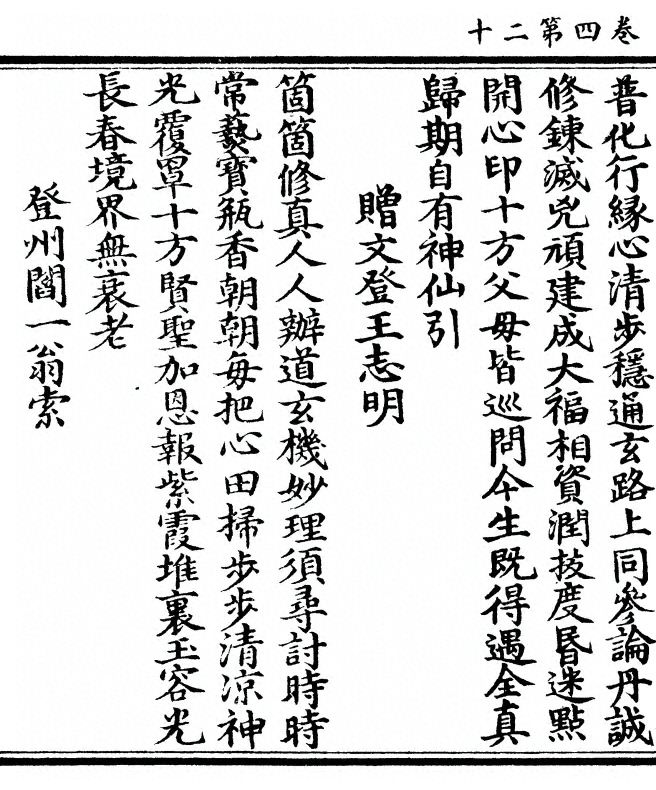 卷四第二十
普化行緣心清步穩通玄路上同參論丹誠
修鍊滅兇頑建成大福相資潤技度昬迷點
開心印十方父毋皆巡問今生既得遇全真
歸期自有神仙引
贈文登王志明
箇箇修真人人辦道玄機妙理須尋討時時
常爇寶瓶香朝朝每把心田掃步步清涼神
光覆罩十方賢聖加恩報紫霞堆裏玉容光
長春境界無衰老
登州閻一翁索